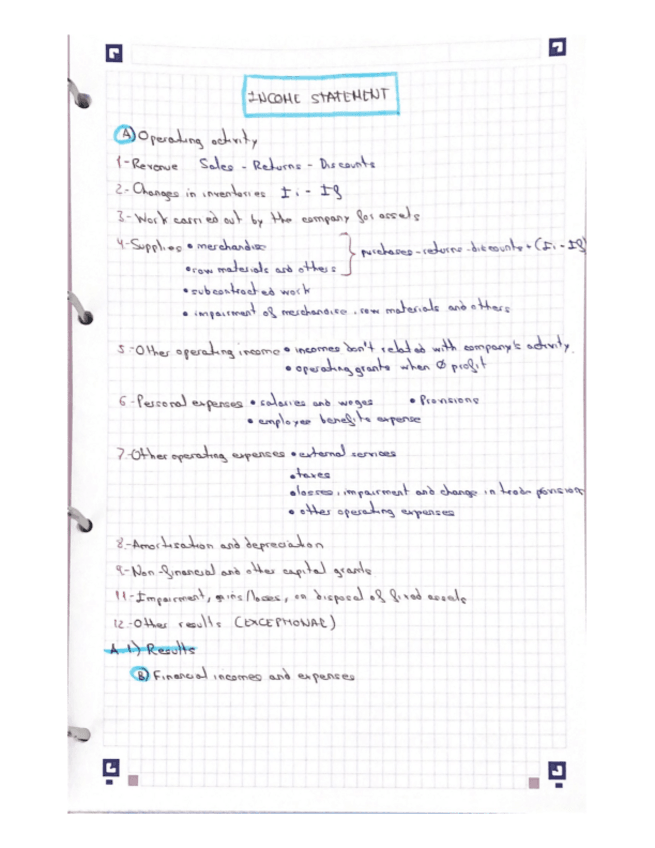 INCOME STATEMENT
A) Operating activity
1- Revenue Sales - Returns - Discounts
2- Changes in inventories Ii - If
3- Work carried out by the company for assets
4- Supplies • merchandise
purchases - returns - discounts + (Ii - If)
• raw materials and others
• subcontracted work
• impairment of merchandise, raw materials and others
5- Other operating income • incomes don't related with company's activity.
• operating grants when Ø profit
6- Personal expenses • salaries and wages • Provisions
• employee benefits expense
7- Other operating expenses • external services
• taxes
• losses, impairment and change in trade provision
• other operating expenses
8- Amortisation and depreciation
9- Non-financial and other capital grants
11- Impairment, gains/losses, on disposal of fixed assets
12- Other results (EXCEPTIONAL)
A 1) Results
B) Financial incomes and expenses